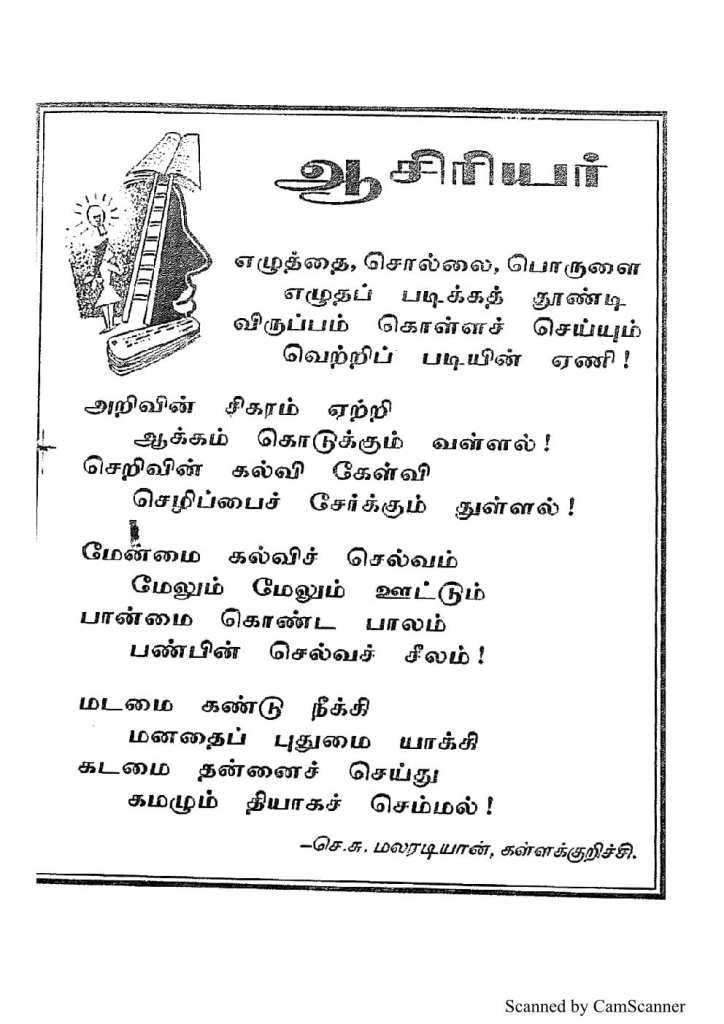 ஆசிரியர்
எழுத்தை, சொல்லை, பொருளை
எழுதப் படிக்கத் தூண்டி
விருப்பம் கொள்ளச் செய்யும்
வெற்றிப் படியின் ஏணி !
அறிவின் சிகரம் ஏற்றி
ஆக்கம் கொடுக்கும் வள்ளல் !
செறிவின் கல்வி கேள்வி
செழிப்பைச் சேர்க்கும் துள்ளல் !
மேன்மை கல்விச் செல்வம்
மேலும் மேலும் ஊட்டும்
பான்மை கொண்ட பாலம்
பண்பின் செல்வச் சீலம் !
மடமை கண்டு நீக்கி
மனதைப் புதுமை யாக்கி
கடமை தன்னைச் செய்து
கமழும் தியாகச் செம்மல் !
–செ.சு. மலரடியான், கள்ளக்குறிச்சி.
Scanned by CamScanner